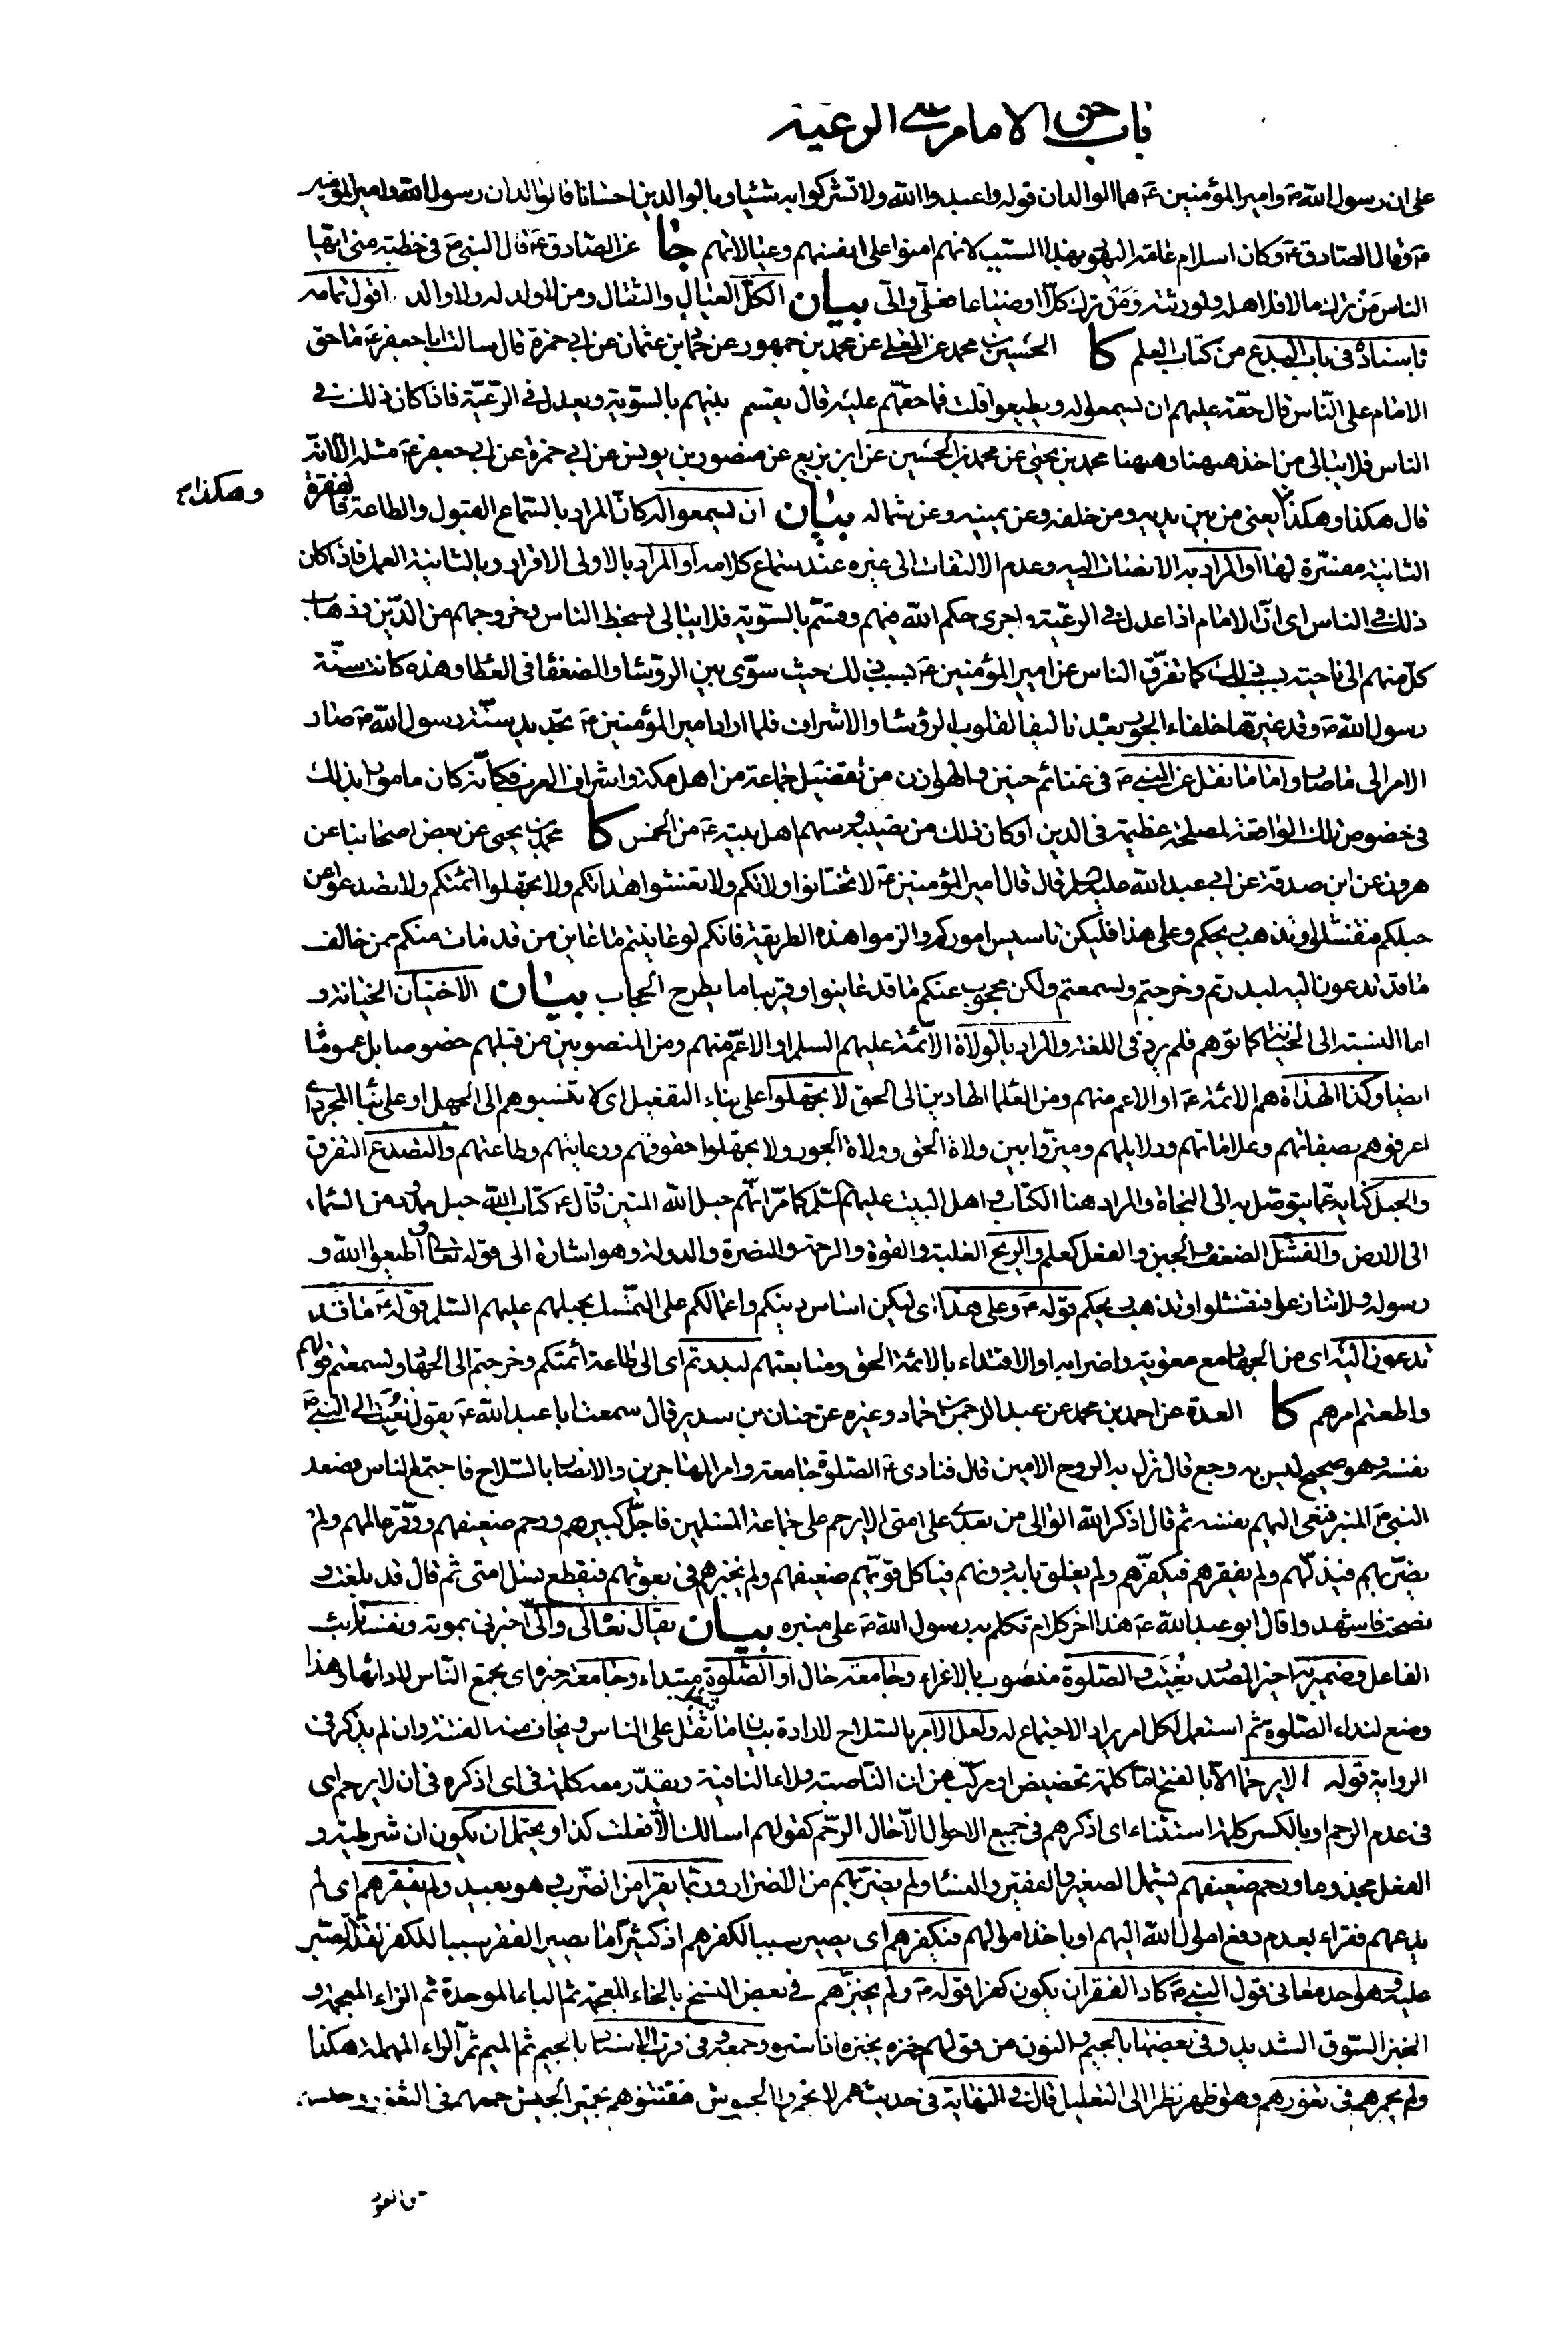 باب حق الامام على الرعية
على ان رسول الله ص و امير المؤمنين ع هما الوالدان قوله واعبدوا الله ولا تشركوا به شيئا وبالوالدين احسانا فالوالدان رسول الله وامير المؤمنين
ص وقال الصادق ع وكان اسلام عامة اليهود بهذا السبب لانهم امنوا على انفسهم وعيالاتهم جا عن الصادق ع قال النبي ص في خطبته منى ايها
الناس من ترك مالا فلاهله ولورثته ومن ترك كلا او ضياعا فعلى والى بيان الكل العيال والثقل ومن لا ولد له ولا والد اقول تمامه
باسناده في باب البدع من كتاب العلم كا الحسين بن محمد عن المعلى عن محمد بن جمهور عن حماد بن عثمان عن ابي حمزة قال سالت ابا جعفر ع ما حق
الامام على الناس قال حقه عليهم ان يسمعوا له ويطيعوا قلت فما حقهم عليه قال يقسم بينهم بالسوية ويعدل في الرعية فاذا كان ذلك في
الناس فلا يبالى من اخذ ههنا وههنا محمد بن يحيى عن محمد بن الحسين عن ابن بزيع عن منصور بن يونس عن ابي حمزة عن ابي جعفر ع مثله الا انه
قال هكذا وهكذا يعنى من بين يديه ومن خلفه وعن يمينه وعن شماله بيان ان يسمعوا له كان المراد بالسماع القبول والطاعة فالفقرة
وهكذا
الثانية مفسرة لها او المراد به الانصات اليه وعدم الالتفات الى غيره عند سماع كلامه او المراد بالاولى الاقرار وبالثانية العمل فاذا كان
ذلك في الناس اى ان الامام اذا عدل في الرعية واجرى حكم الله فيهم وقسم بالسوية فلا يبالى بسخط الناس وخروجهم من الدين وذهاب
كل منهم الى ناحية بسبب ذلك كما تفرق الناس عن امير المؤمنين ع بسبب ذلك حيث سوى بين الرؤسا والضعفا في العطا وهذه كانت سنة
رسول الله ص وقد غيرها خلفاء الجور بعده تاليفا لقلوب الرؤسا والاشراف فلما اراد امير المؤمنين ص تجديد سنة رسول الله ص صار
الامر الى ما صار واما ما نقل عن النبي ص في غنائم حنين والهوازن من تفضيل جماعة من اهل مكة واشراف العرب فكانه كان مامورا بذلك
في خصوص تلك الواقعة لمصلحة عظيمة في الدين او كان ذلك من نصيبه وسهم اهل بيته ع من الخمس كا محمد بن يحيى عن بعض اصحابنا عن
هرون عن ابن صدقة عن ابي عبد الله عليه السلم قال قال امير المؤمنين ع لا تختانوا ولاتكم ولا تغشوا هداتكم ولا تجهلوا ائمتكم ولا تصدعوا عن
حبلكم فتفشلوا وتذهب ريحكم وعلى هذا فليكن تاسيس اموركم والزموا هذه الطريقة فانكم لو عاينتم ما عاين من قد مات منكم ممن خالف
ما قد تدعون اليه لبدرتم وخرجتم ولسمعتم ولكن محجوب عنكم ما قد عاينوا وقريبا ما يطرح الحجاب بيان الاختيان الخيانة و
اما النسبة الى الخيانة كما توهم فلم يرد في اللغة والمراد بالولاة الائمة عليهم السلم او الاعم منهم ومن المنصوبين من قبلهم خصوصا بل عموما
ايضا وكذا الهداة هم الائمة ع او الاعم منهم ومن العلما الهادين الى الحق لا تجهلوا على بناء التفعيل اى لا تنسبوهم الى الجهل او على بنا المجرد اى
اعرفوهم بصفاتهم وعلاماتهم ودلايلهم وميزوا بين ولاة الحق وولاة الجور ولا تجهلوا حقوقهم ورعايتهم وطاعتهم والتصدع التفرق
والحبل كناية عما يتوصل به الى النجاة والمراد هنا الكتاب واهل البيت عليهم السلم كما مر انهم حبل الله المتين وقال ع كتاب الله حبل ممدود من السماء
الى الارض والفشل الضعف والجبن والفعل كعلم والريح الغلبة والقوة والرحمة والنصرة والدولة وهو اشارة الى قوله تعالى واطيعوا الله و
رسوله ولا تنازعوا فتفشلوا وتذهب ريحكم قوله ع وعلى هذا اى ليكن اساس دينكم واعمالكم على التمسك بحبلهم عليهم السلم قوله ع ما قد
تدعون اليه اى من الجهاد مع معوية واضرابه او الاقتداء بالائمة الحق ومتابعتهم لبدرتم اى الى طاعة ائمتكم وخرجتم الى الجهاد ولسمعتم قولهم
واطعتم امرهم كا العدة عن احمد بن محمد عن عبد الرحمن بن حماد وغيره عن حنان بن سدير قال سمعت ابا عبد الله ع يقول نعيت الى النبي ص
نفسه وهو صحيح ليس به وجع قال نزل به الروح الامين قال فنادى ع الصلوة جامعة وامر المهاجرين والانصار بالسلاح فاجتمع الناس فصعد
النبي ص المنبر فنعى اليهم نفسه ثم قال اذكر الله الوالى من بعدى على امتى الا يرحم على جماعة المسلمين فاجل كبيرهم ورحم ضعيفهم ووقر عالمهم ولم
يضر بهم فيذلهم ولم يفقرهم فيكفرهم ولم يغلق بابه دونهم فياكل قويهم ضعيفهم ولم يخبزهم في بعوثهم فيقطع نسل امتى ثم قال قد بلغت و
نصحت فاشهدوا قال ابو عبد الله ع هذا اخر كلام تكلم به رسول الله ص على منبره بيان يقال نعالى والى اخبرنى بموته ونفسه نايب
الفاعل وضمير به راجع المصدر نعيت والصلوة منصوب بالاغراء وجامعة حال او الصلوة مبتداء وجامعة خبره اى تجمع الناس لادائها وهذا
وضع لنداء الصلوة ثم استعمل لكل امر يراد الاجتماع له ولعل الامر بالسلاح لارادة بيان ما ثقل على الناس ويخاف منه الفتنة وان لم يذكر في
الرواية قوله الا يرحم الا بالفتح اما كلمة تحضيض او مركب من ان الناصبة ولاء النافية ويقدر معه كلمة في اى اذكره في ان لا يرحم اى
في عدم الرحم او بالكسر كلمة استثناء اى اذكرهم في جميع الاحوال الا حال الرحم كقولهم اسالك الا فعلت كذا ويحتمل ان يكون ان شرطية و
الفعل مجذوما ورحم ضعيفهم يشمل الصغير والفقير والنساء ولم يضر بهم من الاضرار وربما يقرا من الضرب وهو بعيد ولم يفقرهم اى لم
يدعهم فقراء بعدم دفع اموال الله اليهم او باخذ اموالهم فيكفرهم اى يصير سببا لكفرهم اذ كثيرا ما يصير الفقر سببا للكفر لقلة الصبر
عليه وهو احد معانى قول النبي ص كاد الفقر ان يكون كفرا قوله ص ولم يخبزهم في بعض النسخ بالخاء المعجمة ثم الباء الموحدة ثم الزاء المعجمة و
الخبز السوق الشديد وفي بعضها بالجيم والنون من قولهم جنزه يجنزه اذا ستره وجمعه وفي قرب الاسناد بالجيم ثم الميم ثم الراء المهملة هكذا
ولم يجمرهم في ثغورهم وهو اظهر نظرا الى التعليل قال في النهاية في حديث عمر لا تجمروا الجيوش فتفتنوهم تجمير الجيش جمعهم في الثغور وحبسهم